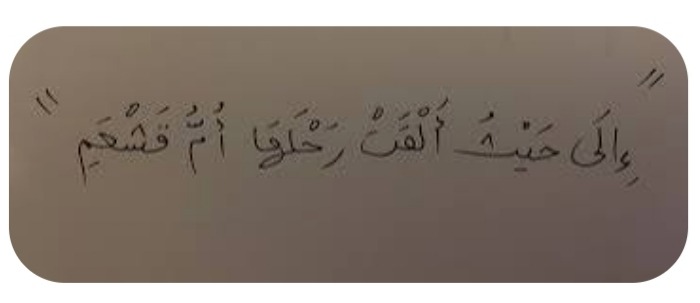 " إِلَى حَيْثُ أَلْقَتْ رَحْلَهَا أُمُّ قَشْعَمِ "